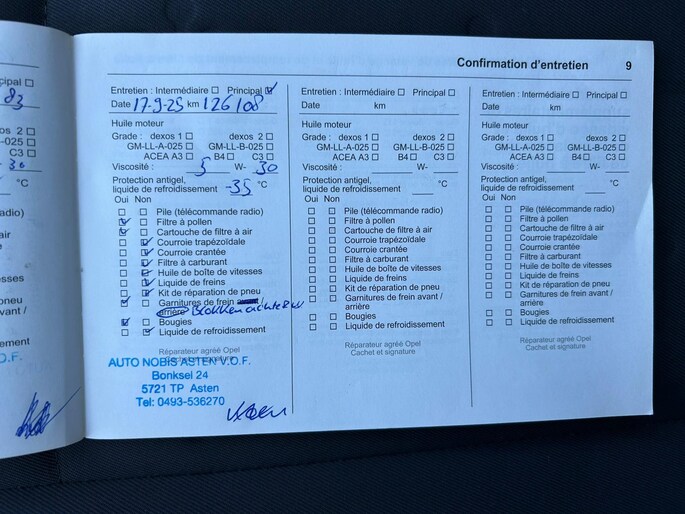 Confirmation d'entretien 9
cipal ☐
83
xos 2 ☐
-025 ☐
C3 ☐
30
°C
adio)
air
esses
pneu
vant /
ement
O.F.
Entretien : Intermédiaire ☐ Principal ☑
Date 17-9-25 km 126108
Huile moteur
Grade : dexos 1 ☐ dexos 2 ☐
GM-LL-A-025 ☐ GM-LL-B-025 ☐
ACEA A3 ☐ B4 ☐ C3 ☐
Viscosité : 5 W- 30
Protection antigel,
liquide de refroidissement -35 °C
Oui Non
☐ ☐ Pile (télécommande radio)
☑ ☐ Filtre à pollen
☑ ☐ Cartouche de filtre à air
☐ ☑ Courroie trapézoïdale
☐ ☑ Courroie crantée
☐ ☑ Filtre à carburant
☐ ☑ Huile de boîte de vitesses
☐ ☑ Liquide de freins
☐ ☑ Kit de réparation de pneu
☑ ☐ Garnitures de frein avant /
arrière Blokken achter
☑ ☐ Bougies
☐ ☑ Liquide de refroidissement
Réparateur agréé Opel
Cachet et signature
AUTO NOBIS ASTEN V.O.F.
Bonksel 24
5721 TP Asten
Tel: 0493-536270
Entretien : Intermédiaire ☐ Principal ☐
Date km
Huile moteur
Grade : dexos 1 ☐ dexos 2 ☐
GM-LL-A-025 ☐ GM-LL-B-025 ☐
ACEA A3 ☐ B4 ☐ C3 ☐
Viscosité : W-
Protection antigel,
liquide de refroidissement °C
Oui Non
☐ ☐ Pile (télécommande radio)
☐ ☐ Filtre à pollen
☐ ☐ Cartouche de filtre à air
☐ ☐ Courroie trapézoïdale
☐ ☐ Courroie crantée
☐ ☐ Filtre à carburant
☐ ☐ Huile de boîte de vitesses
☐ ☐ Liquide de freins
☐ ☐ Kit de réparation de pneu
☐ ☐ Garnitures de frein avant /
arrière
☐ ☐ Bougies
☐ ☐ Liquide de refroidissement
Réparateur agréé Opel
Cachet et signature
Entretien : Intermédiaire ☐ Principal ☐
Date km
Huile moteur
Grade : dexos 1 ☐ dexos 2 ☐
GM-LL-A-025 ☐ GM-LL-B-025 ☐
ACEA A3 ☐ B4 ☐ C3 ☐
Viscosité : W-
Protection antigel,
liquide de refroidissement °C
Oui Non
☐ ☐ Pile (télécommande radio)
☐ ☐ Filtre à pollen
☐ ☐ Cartouche de filtre à air
☐ ☐ Courroie trapézoïdale
☐ ☐ Courroie crantée
☐ ☐ Filtre à carburant
☐ ☐ Huile de boîte de vitesses
☐ ☐ Liquide de freins
☐ ☐ Kit de réparation de pneu
☐ ☐ Garnitures de frein avant /
arrière
☐ ☐ Bougies
☐ ☐ Liquide de refroidissement
Réparateur agréé Opel
Cachet et signature